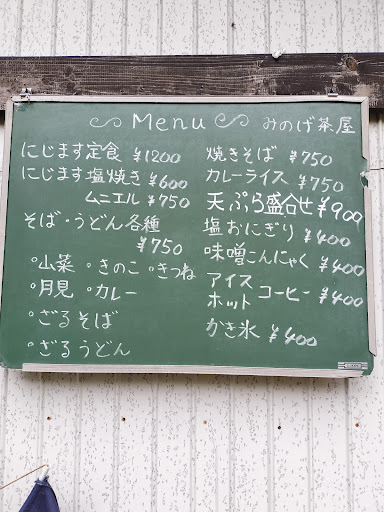 Menu みのげ茶屋
にじます定食 ¥1200
にじます塩焼き ¥600
ムニエル ¥750
そば・うどん各種
¥750
°山菜 °きのこ °きつね
°月見 °カレー
°ざるそば
°ざるうどん
焼きそば ¥750
カレーライス ¥750
天ぷら盛合せ ¥900
塩おにぎり ¥400
味噌こんにゃく ¥400
アイス
ホット コーヒー ¥400
かき氷 ¥400